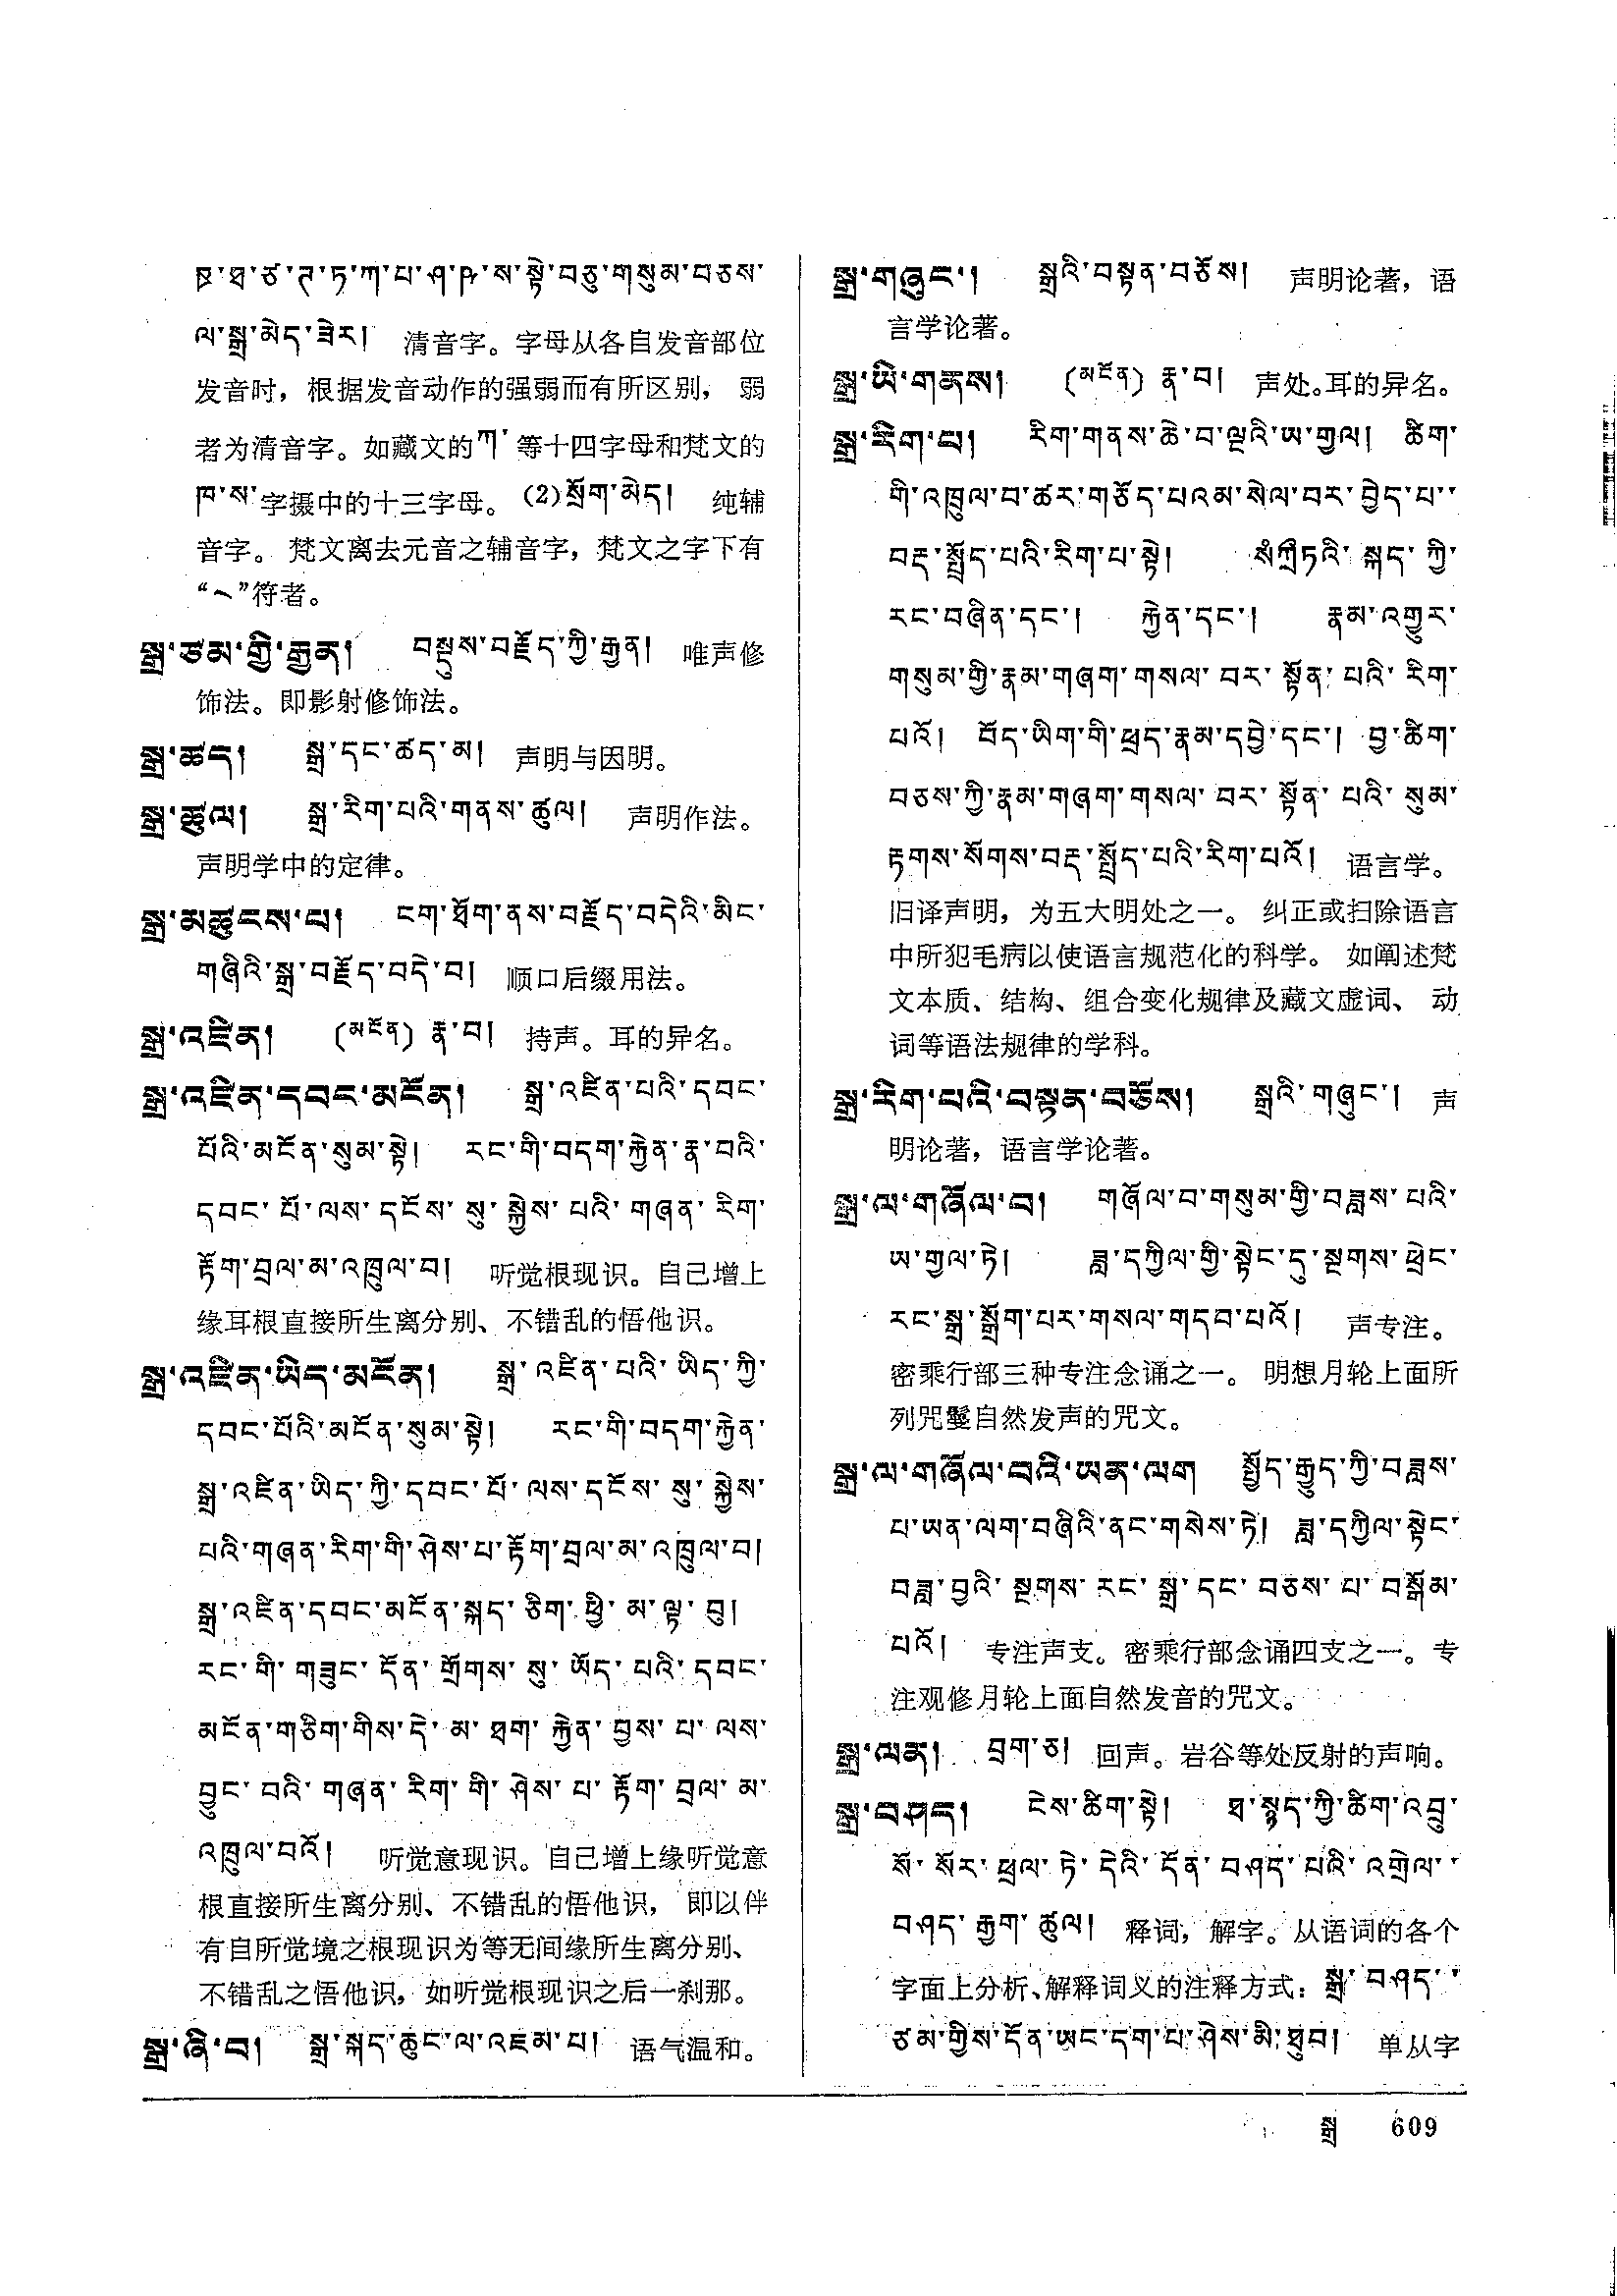 ཁ་ཐ་ཙ་ཊ་ཏ་ཀ་པ་ཤ་ཥ་ས་སྟེ་བཅུ་གསུམ་བཅས་
ལ་སྒྲ་མེད་ཟེར། 清音字。字母从各自发音部位
发音时，根据发音动作的强弱而有所区别，弱
者为清音字。如藏文的ཀ་等十四字母和梵文的
ཁ་ས་字摄中的十三字母。(2)སྲོག་མེད། 纯辅
音字。梵文离去元音之辅音字，梵文之字下有
“㇏”符者。
སྒྲ་ཙམ་གྱི་རྒྱན། བསྡུས་བརྗོད་ཀྱི་རྒྱན། 唯声修
饰法。即影射修饰法。
སྒྲ་ཚད། སྒྲ་དང་ཚད་མ། 声明与因明。
སྒྲ་ཚུལ། སྒྲ་རིག་པའི་གནས་ཚུལ། 声明作法。
声明学中的定律。
སྒྲ་མཚུངས་པ། ངག་ཐོག་ནས་བརྗོད་བདེའི་མིང་
གཞིའི་སྒྲ་བརྗོད་བདེ་བ། 顺口后缀用法。
སྒྲ་འཛིན། (མངོན) རྣ་བ། 持声。耳的异名。
སྒྲ་འཛིན་དབང་མངོན། སྒྲ་འཛིན་པའི་དབང་
པོའི་མངོན་སུམ་སྟེ། རང་གི་བདག་རྐྱེན་རྣ་བའི་
དབང་པོ་ལས་དངོས་སུ་སྐྱེས་པའི་གཞན་རིག་
རྟོག་བྲལ་མ་འཁྲུལ་བ། 听觉根现识。自己增上
缘耳根直接所生离分别、不错乱的悟他识。
སྒྲ་འཛིན་ཡིད་མངོན། སྒྲ་འཛིན་པའི་ཡིད་ཀྱི་
དབང་པོའི་མངོན་སུམ་སྟེ། རང་གི་བདག་རྐྱེན་
སྒྲ་འཛིན་ཡིད་ཀྱི་དབང་པོ་ལས་དངོས་སུ་སྐྱེས་
པའི་གཞན་རིག་གི་ཤེས་པ་རྟོག་བྲལ་མ་འཁྲུལ་བ།
སྒྲ་འཛིན་དབང་མངོན་སྐད་ཅིག་ཕྱི་མ་ལྟ་བུ།
རང་གི་གཟུང་དོན་གྲོགས་སུ་ཡོད་པའི་དབང་
མངོན་གཅིག་གིས་དེ་མ་ཐག་རྐྱེན་བྱས་པ་ལས་
བྱུང་བའི་གཞན་རིག་གི་ཤེས་པ་རྟོག་བྲལ་མ་
འཁྲུལ་བའོ། 听觉意现识。自己增上缘听觉意
根直接所生离分别、不错乱的悟他识，即以伴
有自所觉境之根现识为等无间缘所生离分别、
不错乱之悟他识，如听觉根现识之后一刹那。
སྒྲ་ཞི་བ། སྒྲ་སྐད་ཆུང་ལ་འཇམ་པ། 语气温和。
སྒྲ་གཞུང་། སྒྲའི་བསྟན་བཅོས། 声明论著，语
言学论著。
སྒྲ་ཡི་གནས། (མངོན) རྣ་བ། 声处。耳的异名。
སྒྲ་རིག་པ། རིག་གནས་ཆེ་བ་ལྔའི་ཡ་གྱལ། ཚིག་
གི་འཁྲུལ་བ་ཚར་གཅོད་པའམ་སེལ་བར་བྱེད་པ་་
བརྡ་སྤྲོད་པའི་རིག་པ་སྟེ། སཾཀྲྀཏའི་སྐད་ཀྱི་
རང་བཞིན་དང་། རྐྱེན་དང་། རྣམ་འགྱུར་
གསུམ་གྱི་རྣམ་གཞག་གསལ་བར་སྟོན་པའི་རིག་
པའོ། བོད་ཡིག་གི་ཕྲད་རྣམ་དབྱེ་དང་། བྱ་ཚིག་
བཅས་ཀྱི་རྣམ་གཞག་གསལ་བར་སྟོན་པའི་སུམ་
རྟགས་སོགས་བརྡ་སྤྲོད་པའི་རིག་པའོ། 语言学。
旧译声明，为五大明处之一。纠正或扫除语言
中所犯毛病以使语言规范化的科学。如阐述梵
文本质、结构、组合变化规律及藏文虚词、动
词等语法规律的学科。
སྒྲ་རིག་པའི་བསྟན་བཅོས། སྒྲའི་གཞུང་། 声
明论著，语言学论著。
སྒྲ་ལ་གཞོལ་བ། གཞོལ་བ་གསུམ་གྱི་བཟླས་པའི་
ཡ་གྱལ་ཏེ། ཟླ་དཀྱིལ་གྱི་སྟེང་དུ་སྔགས་ཕྲེང་
རང་སྒྲ་སྒྲོག་པར་གསལ་གདབ་པའོ། 声专注。
密乘行部三种专注念诵之一。明想月轮上面所
列咒鬘自然发声的咒文。
སྒྲ་ལ་གཞོལ་བའི་ཡན་ལག སྤྱོད་རྒྱུད་ཀྱི་བཟླས་
པ་ཡན་ལག་བཞིའི་ནང་གསེས་ཏེ། ཟླ་དཀྱིལ་སྟེང་
བཟླ་བྱའི་སྔགས་རང་སྒྲ་དང་བཅས་པ་བསྒོམ་
པའོ། 专注声支。密乘行部念诵四支之一。专
注观修月轮上面自然发音的咒文。
སྒྲ་ལན། བྲག་ཅ། 回声。岩谷等处反射的声响。
སྒྲ་བཤད། ངེས་ཚིག་སྟེ། ཐ་སྙད་ཀྱི་ཚིག་འབྲུ་
སོ་སོར་ཕྲལ་ཏེ་དེའི་དོན་བཤད་པའི་འགྲེལ་་
བཤད་རྒྱག་ཚུལ། 释词，解字。从语词的各个
字面上分析、解释词义的注释方式：སྒྲ་བཤད་་
ཙམ་གྱིས་དོན་ཡང་དག་པ་ཤེས་མི་ཐུབ། 单从字
སྒྲ 609